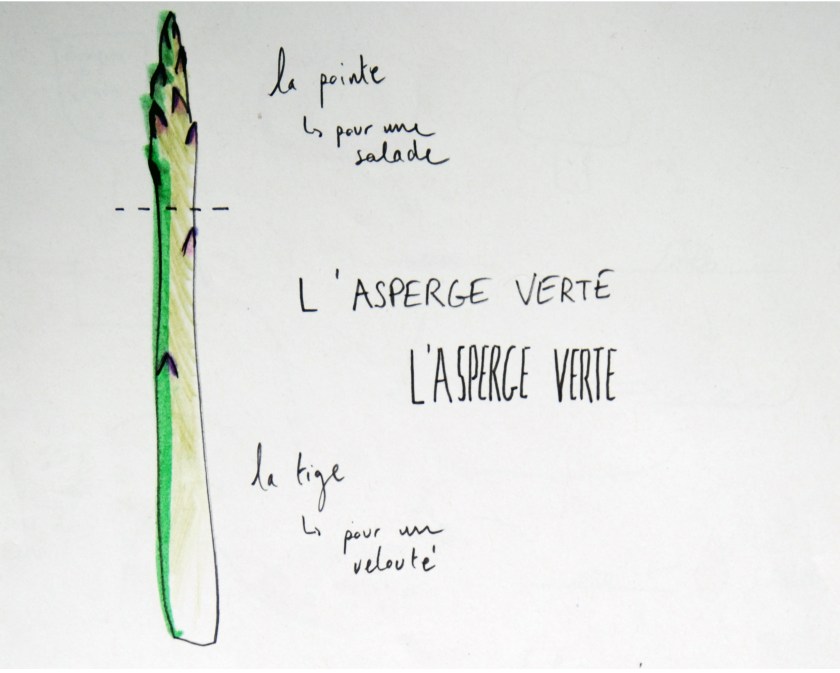 la pointe
↳ pour une
salade
L'ASPERGE VERTE
L'ASPERGE VERTE
la tige
↳ pour un
velouté